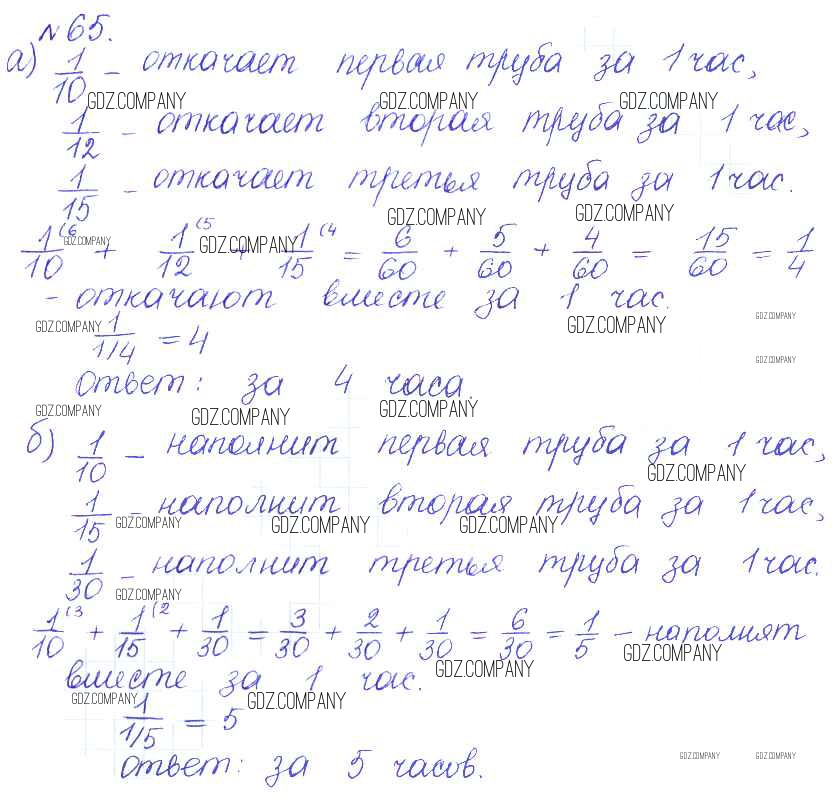 №65.
а) 1/10 – откачает первая труба за 1 час,
GDZ.COMPANY GDZ.COMPANY GDZ.COMPANY
1/12 – откачает вторая труба за 1 час,
1/15 – откачает третья труба за 1 час.
GDZ.COMPANY GDZ.COMPANY
1/10 (6 + 1/12 (5 + 1/15 (4 = 6/60 + 5/60 + 4/60 = 15/60 = 1/4
GDZ.COMPANY GDZ.COMPANY
– откачают вместе за 1 час.
GDZ.COMPANY GDZ.COMPANY GDZ.COMPANY
1/1/4 = 4
GDZ.COMPANY
ответ: за 4 часа.
GDZ.COMPANY GDZ.COMPANY GDZ.COMPANY
б) 1/10 – наполнит первая труба за 1 час,
GDZ.COMPANY
1/15 – наполнит вторая труба за 1 час,
GDZ.COMPANY GDZ.COMPANY GDZ.COMPANY
1/30 – наполнит третья труба за 1 час.
GDZ.COMPANY
1/10 (3 + 1/15 (2 + 1/30 = 3/30 + 2/30 + 1/30 = 6/30 = 1/5 – наполнят
GDZ.COMPANY GDZ.COMPANY
вместе за 1 час.
GDZ.COMPANY GDZ.COMPANY
1/1/5 = 5
ответ: за 5 часов.
GDZ.COMPANY GDZ.COMPANY